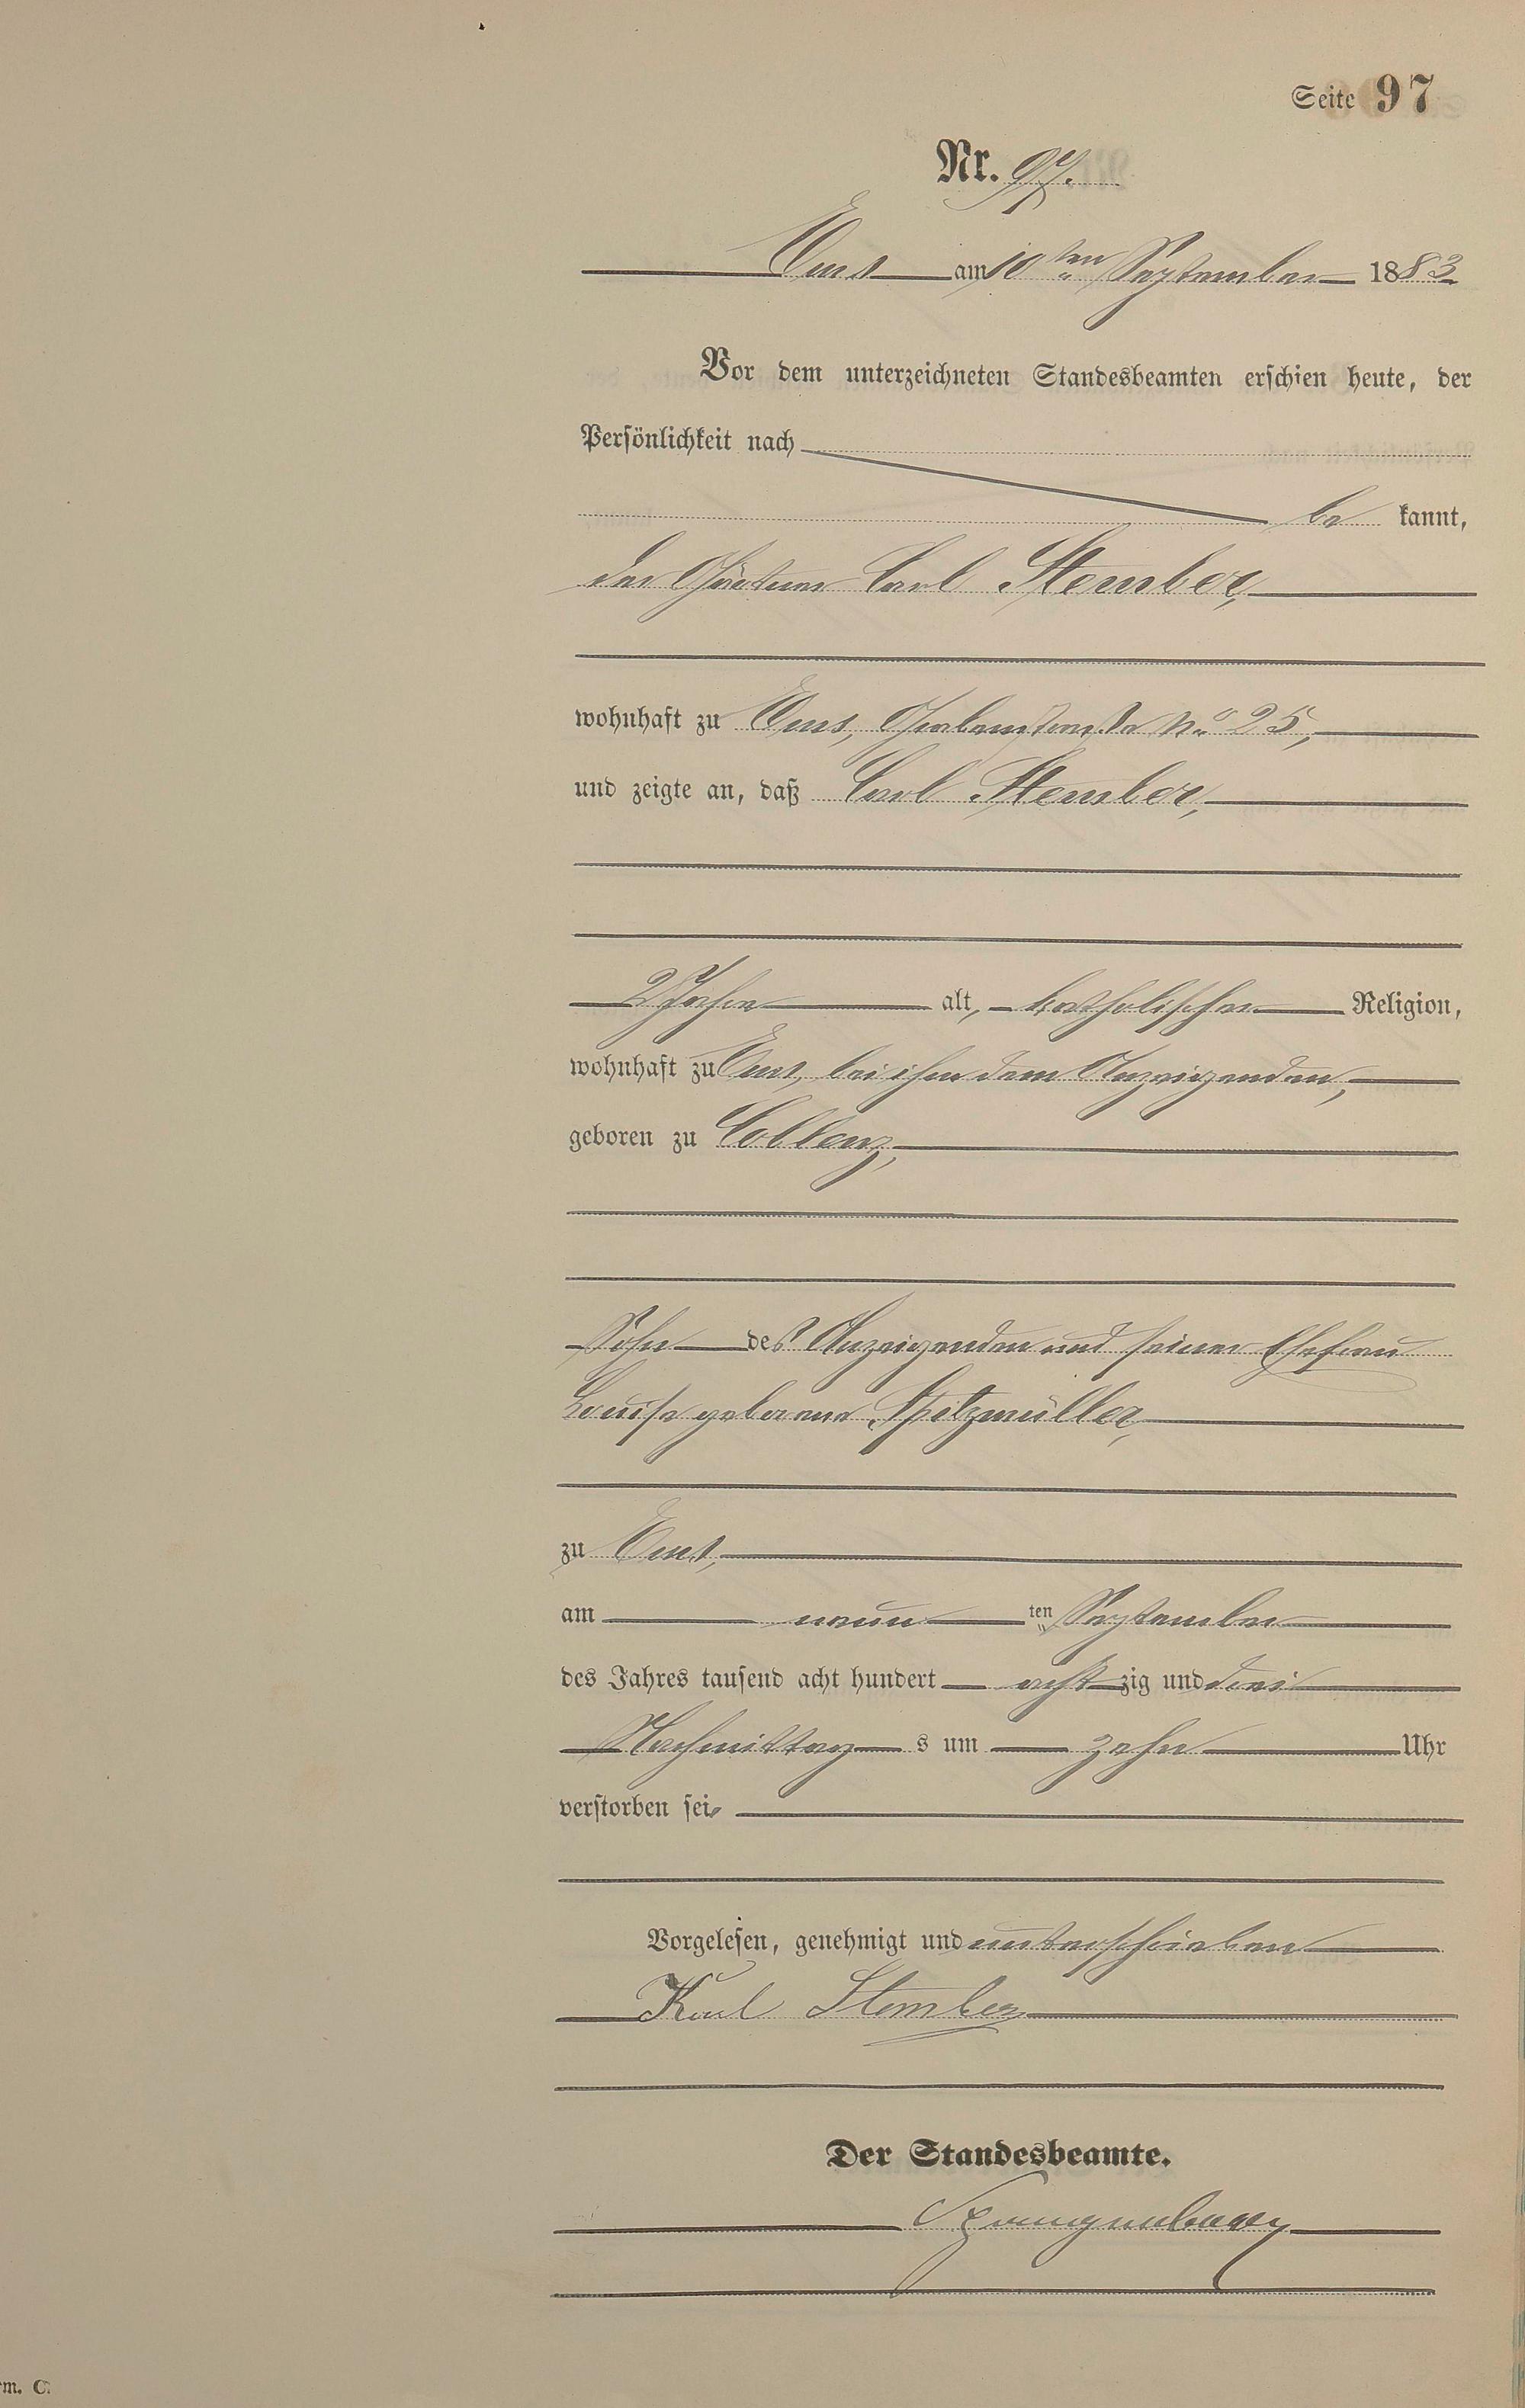 Seite 97
Nr. 97.
Ems am 10ten September 1883
Vor dem unterzeichneten Standesbeamten erschien heute, der
Persönlichkeit nach
be kannt,
der Gärtner Carl Stember,
wohnhaft zu Ems, No 25,
und zeigte an, daß Carl Stember,
2 Jahre alt, katholischer Religion,
wohnhaft zu Ems, bei ihm dem Anzeigenden,
geboren zu Coblenz,
Sohn des Anzeigenden und seiner Ehefrau
Louise geborene Spitzmüller,
zu Ems,
am neun ten September
des Jahres tausend acht hundert acht zig und drei
Nachmittag s um zehn Uhr
verstorben sei.
Vorgelesen, genehmigt und unterschrieben
Karl Stember
Der Standesbeamte.
rm. C.